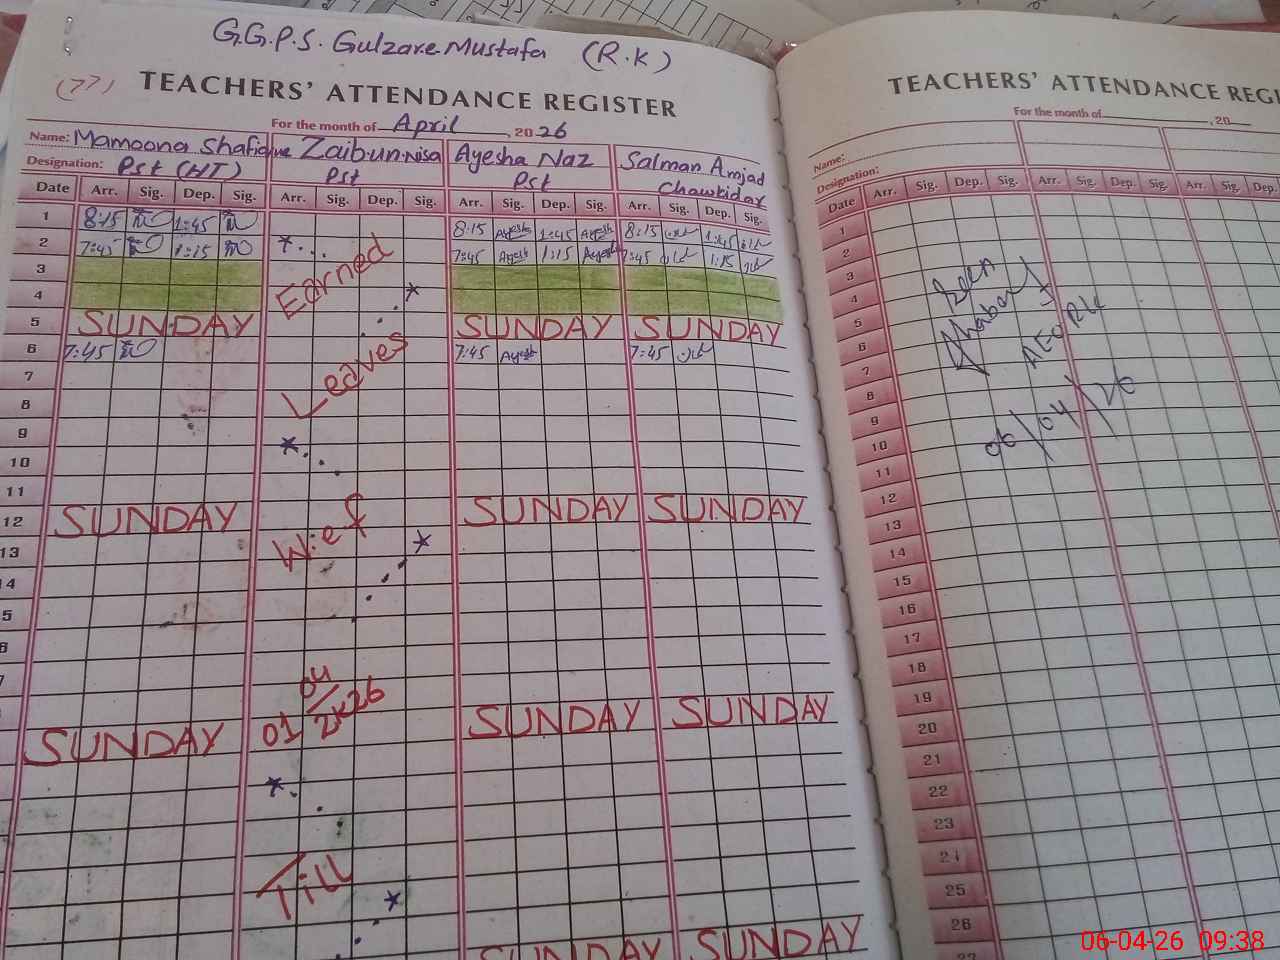 G.G.P.S. Gulzare Mustafa (R.K)
(77) TEACHERS' ATTENDANCE REGISTER
For the month of April, 2026
Name: Mamoona Shafique Zaib.un.Nisa Ayesha Naz Salman Amjad
Designation: Pst (HT) Pst Pst Chowkidar
Date Arr. Sig. Dep. Sig. Arr. Sig. Dep. Sig. Arr. Sig. Dep. Sig. Arr. Sig. Dep. Sig.
1 8:15 1:45 8:15 Ayesh 1:45 Ayesh 8:15 1:45
2 7:45 1:15 7:45 Ayesh 1:15 Ayesh 7:45 1:15
3
4
5 SUNDAY SUNDAY SUNDAY
6 7:45 7:45 Ayesh 7:45
7
8
9
10
11
12 SUNDAY SUNDAY SUNDAY
13
14
5
6
7
SUNDAY SUNDAY SUNDAY
SUNDAY SUNDAY
Earned
Leaves
W.e.f
01/04/2k26
Till
TEACHERS' ATTENDANCE REGI
For the month of , 20
Name:
Designation:
Date Arr. Sig. Dep. Sig. Arr. Sig. Dep. Sig. Arr. Sig. Dep.
1
2
3
4
5
6
7
8
9
10
11
12
13
14
15
16
17
18
19
20
21
22
23
24
25
26
27
Seen
AEO RK
06/04/26
06-04-26 09:38